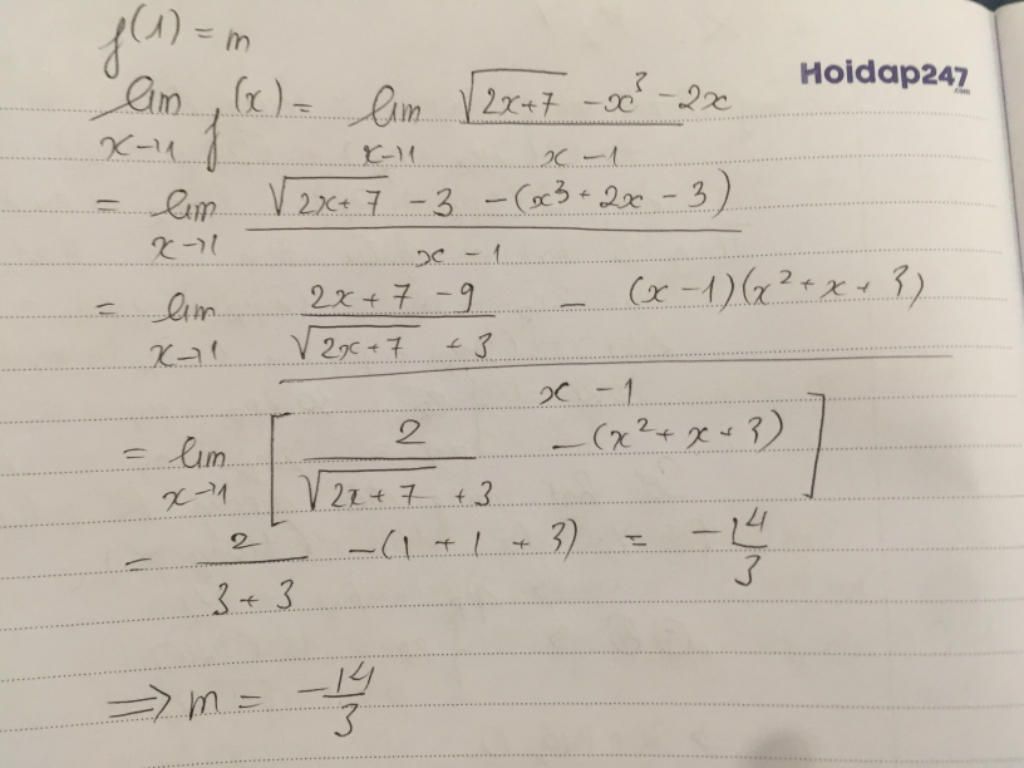 f(1) = m
Hoidap247
.com
lim x→1 f(x) = lim x→1 (√(2x+7) - x³ - 2x) / (x - 1)
= lim x→1 (√(2x+7) - 3 - (x³ + 2x - 3)) / (x - 1)
= lim x→1 ((2x+7-9) / (√(2x+7) + 3) - (x-1)(x² + x + 3)) / (x - 1)
= lim x→1 [2 / (√(2x+7) + 3) - (x² + x + 3)]
= 2 / (3 + 3) - (1 + 1 + 3) = -14/3
⟹ m = -14/3